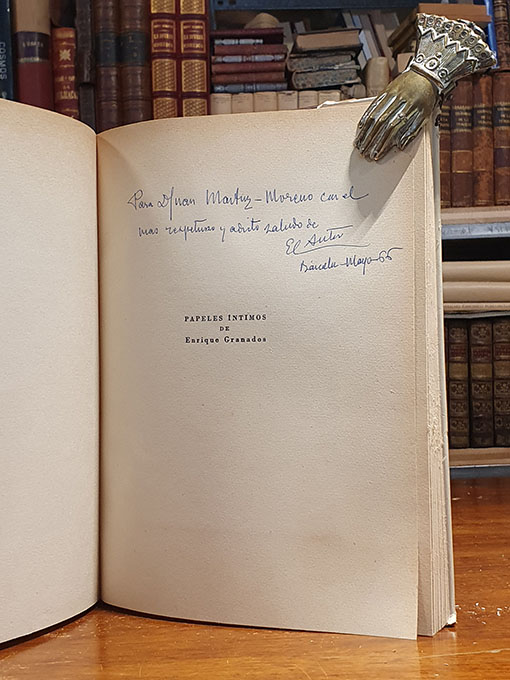 COSMOS
Para D. Juan Martnz-Moreno con el
mas respetuoso y adicto saludo de
El Autor
Barcelona-Mayo-66
PAPELES ÍNTIMOS
DE
Enrique Granados